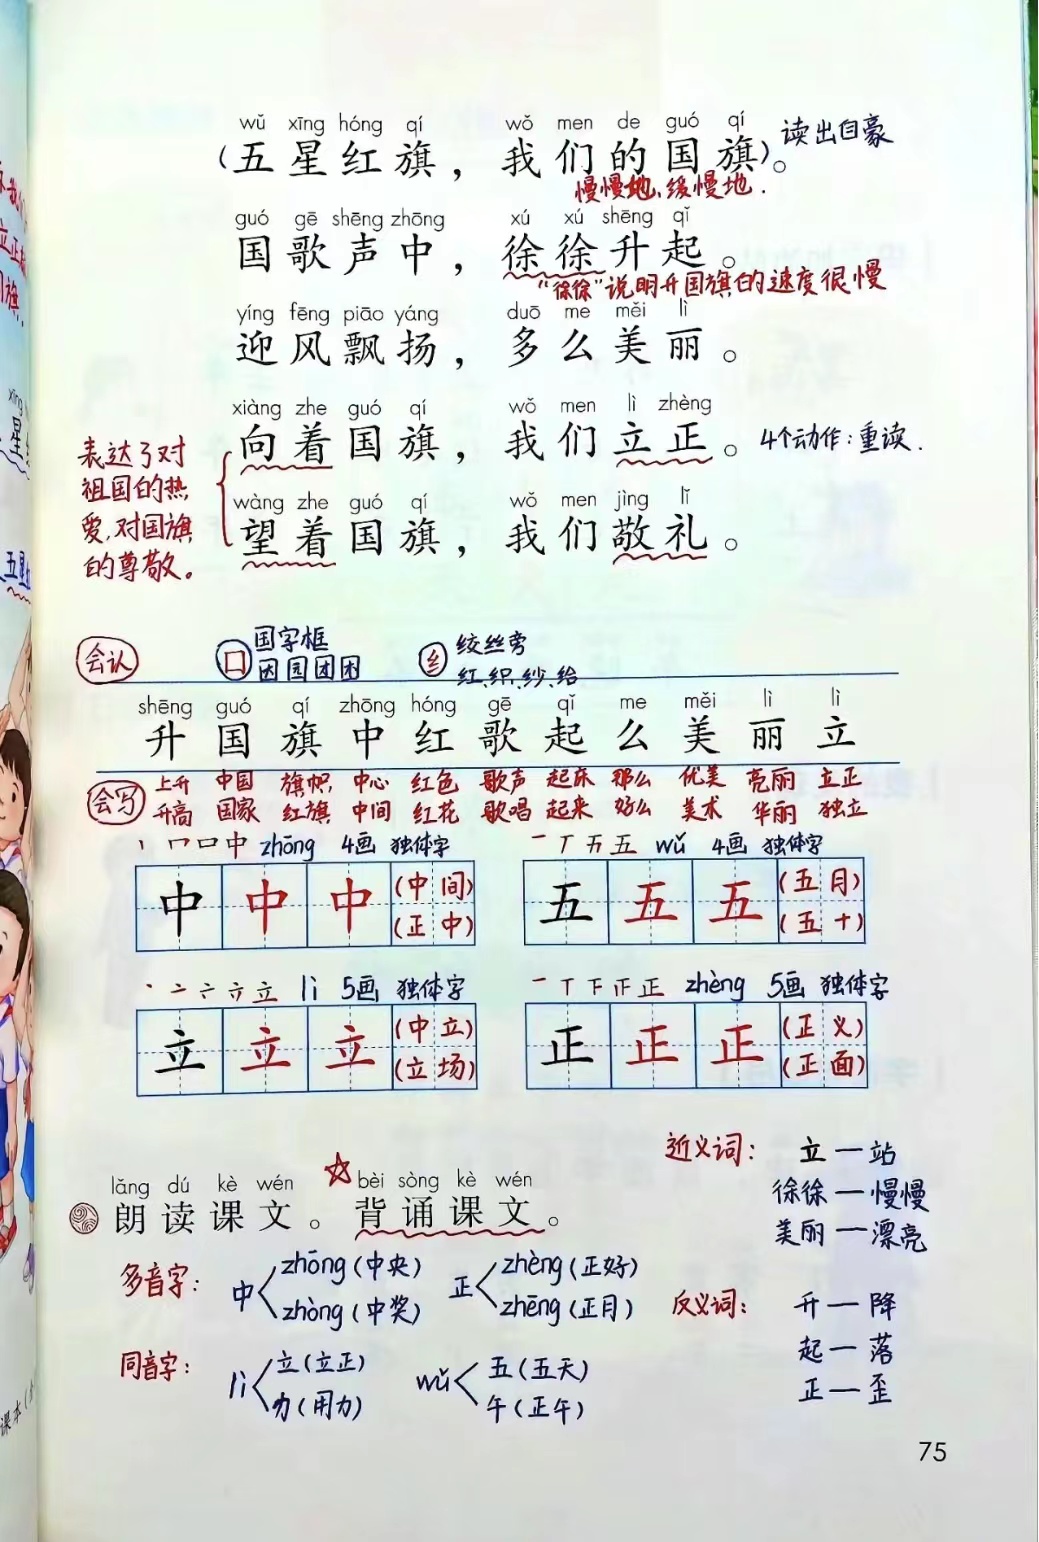 wǔ xīng hóng qí wǒ men de guó qí
(五星红旗，我们的国旗)。 读出自豪
慢慢地、缓慢地.
guó gē shēng zhōng xú xú shēng qǐ
国歌声中，徐徐升起。
“徐徐”说明升国旗的速度很慢
yíng fēng piāo yáng duō me měi lì
迎风飘扬，多么美丽。
xiàng zhe guó qí wǒ men lì zhèng
向着国旗，我们立正。 4个动作：重读.
wàng zhe guó qí wǒ men jìng lǐ
望着国旗，我们敬礼。
表达了对
祖国的热
爱，对国旗
的尊敬。
会认 囗 国字框 纟 绞丝旁
因 园 团 困 红、织、纱、给
shēng guó qí zhōng hóng gē qǐ me měi lì lì
升 国 旗 中 红 歌 起 么 美 丽 立
上升 中国 旗帜 中心 红色 歌声 起床 那么 优美 亮丽 立正
会写 升高 国家 红旗 中间 红花 歌唱 起来 好么 美术 华丽 独立
丨 冂 口 中 zhōng 4画 独体字 一 丆 五 五 wǔ 4画 独体字
中 中 中 (中间) 五 五 五 (五月)
(正中) (五十)
丶 亠 立 lì 5画 独体字 一 丅 下 正 正 zhèng 5画 独体字
立 立 立 (中立) 正 正 正 (正义)
(立场) (正面)
近义词： 立—站
徐徐—慢慢
美丽—漂亮
lǎng dú kè wén bèi sòng kè wén
朗读课文。 背诵课文。
多音字： 中 zhōng(中央) 正 zhèng(正好)
zhòng(中奖) zhēng(正月)
反义词： 升—降
起—落
正—歪
同音字： lì 立(立正) wǔ 五(五天)
力(用力) 午(正午)
75